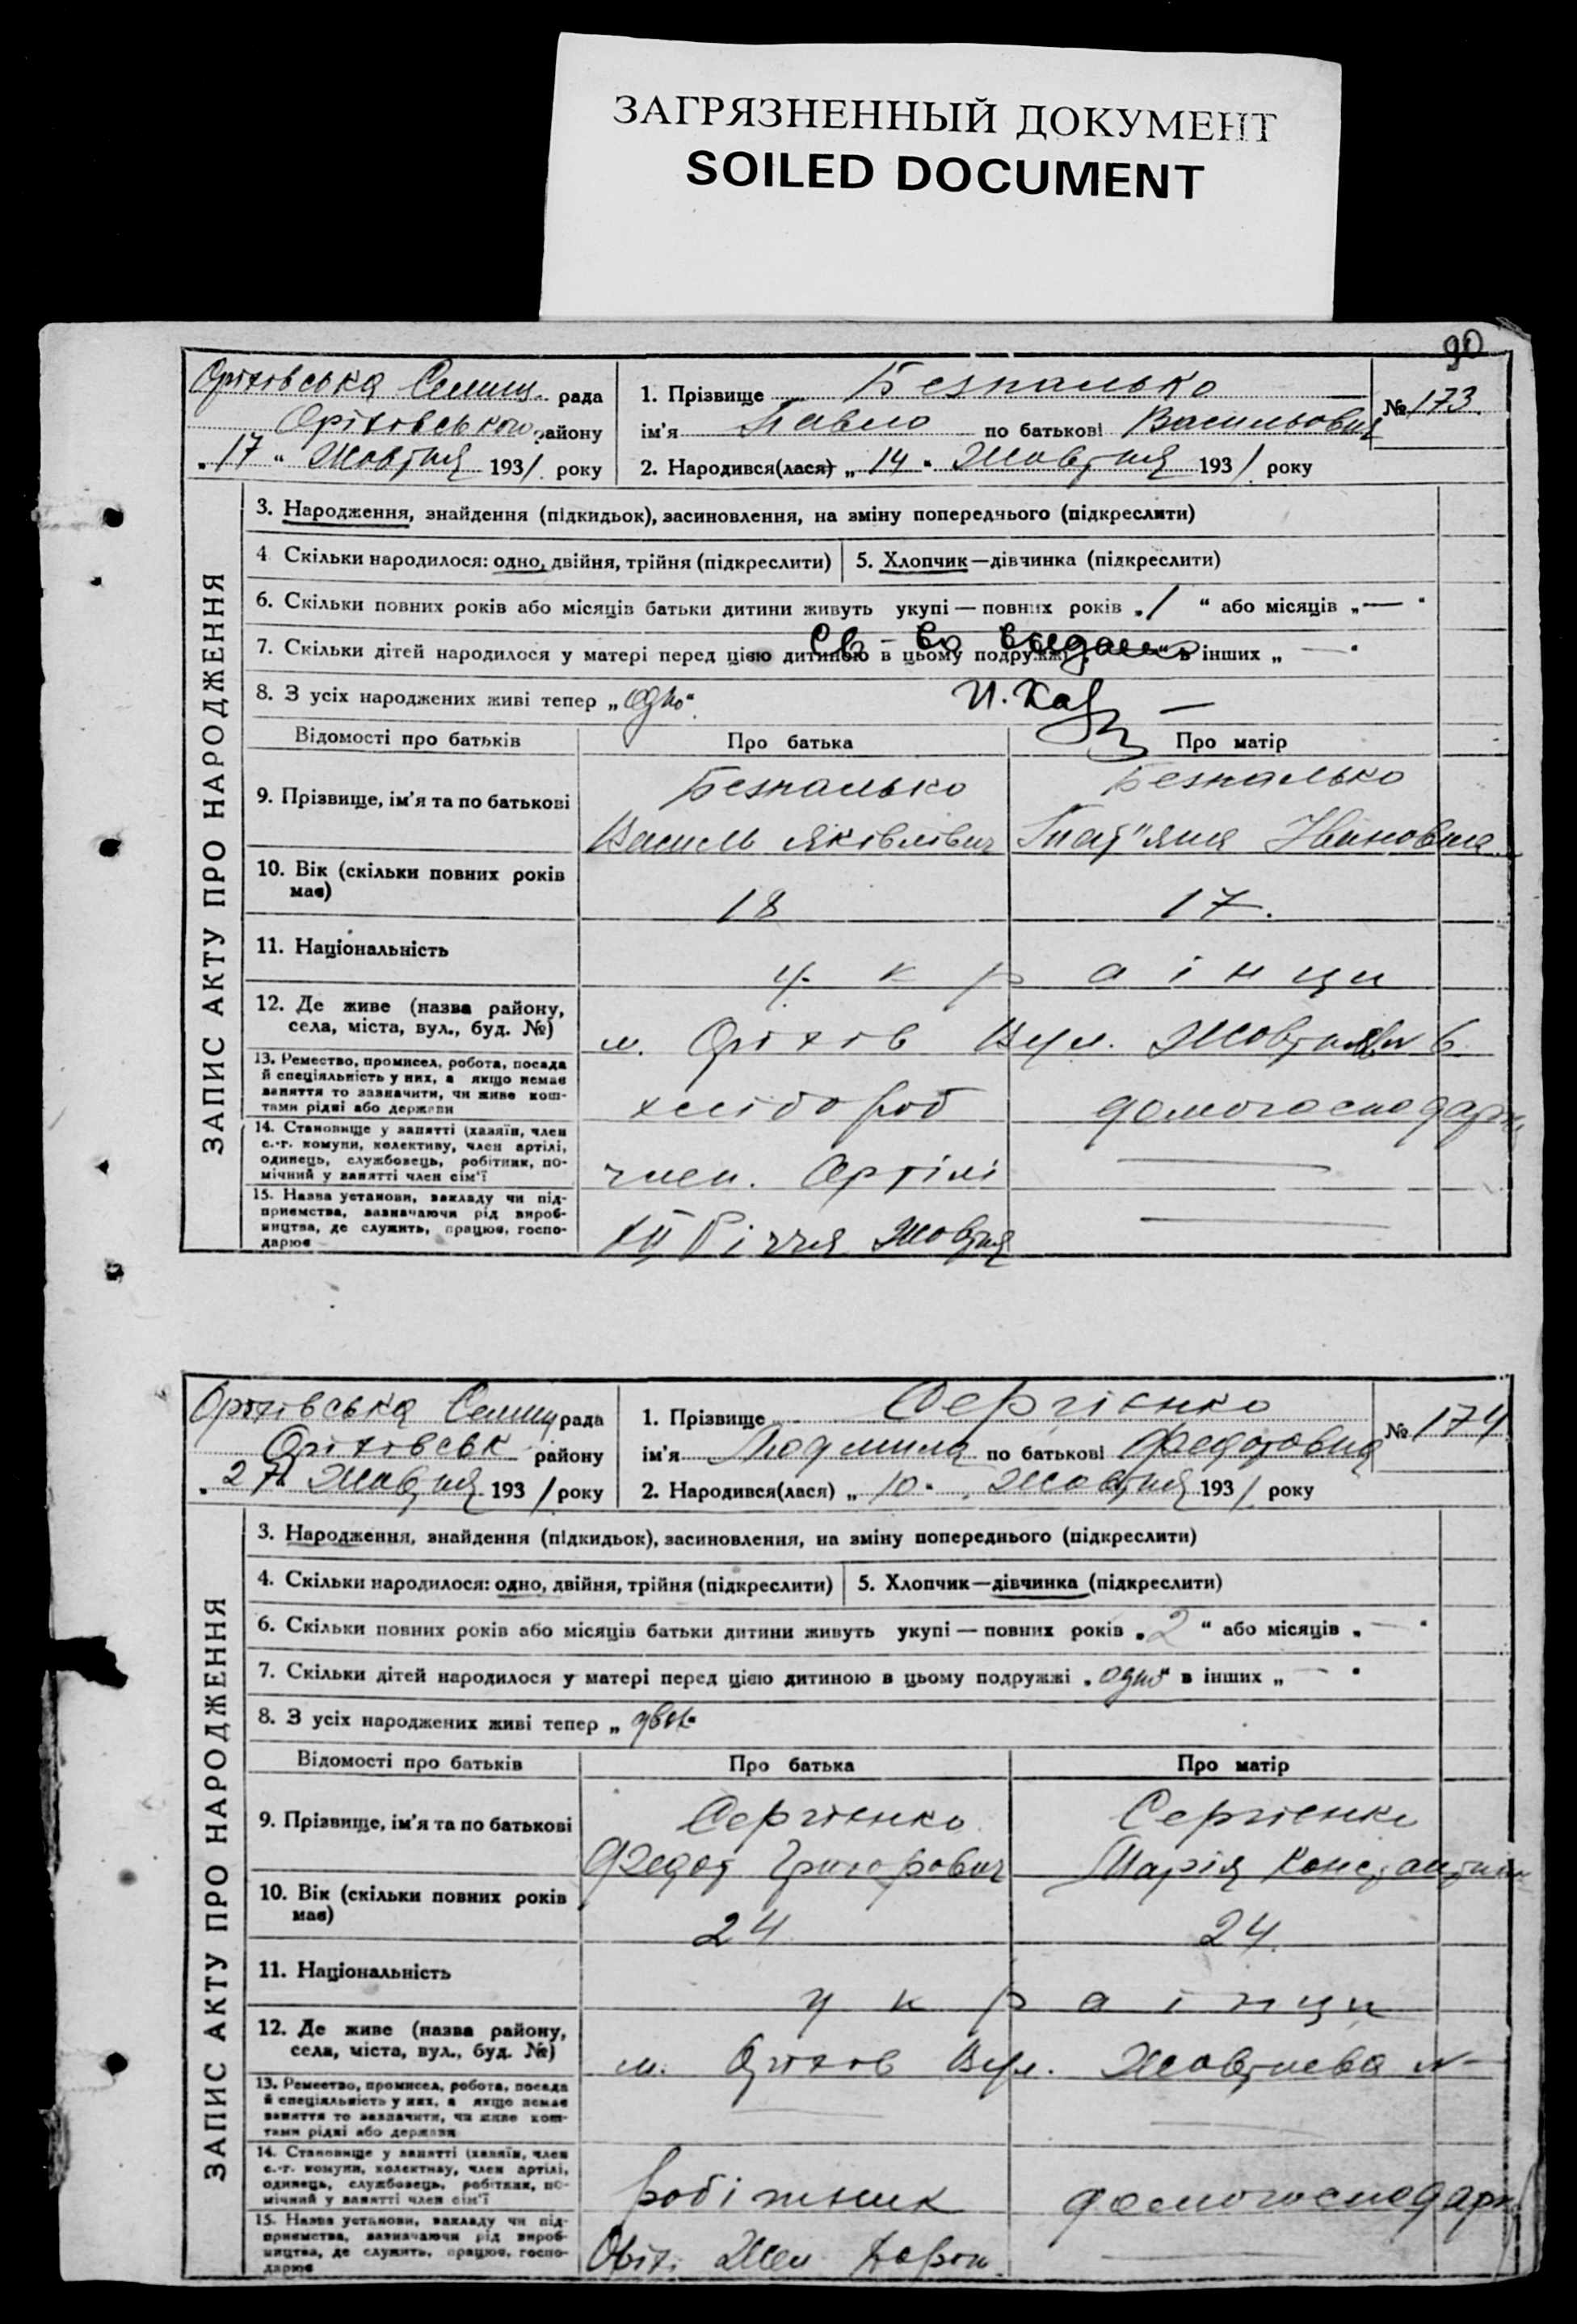 ЗАГРЯЗНЕННЫЙ ДОКУМЕНТ
SOILED DOCUMENT
90
ЗАПИС АКТУ ПРО НАРОДЖЕННЯ
Оріхівська Селищ. рада
Оріхівського району
„17“ Жовтня 1931 року
1. Прізвище Безпалько
ім'я Павло по батькові Васильович
№ 173.
2. Народився(лася) „14“ Жовтня 1931 року
3. Народження, знайдення (підкидьок), засиновлення, на зміну попереднього (підкреслити)
4 Скільки народилося: одно, двійня, трійня (підкреслити)
5. Хлопчик—дівчинка (підкреслити)
6. Скільки повних років або місяців батьки дитини живуть укупі — повних років „1“ або місяців „—“
7. Скільки дітей народилося у матері перед цією дитиною в цьому подружжі в інших „—“
Св-во выдано
8. З усіх народжених живі тепер „одно“
Відомості про батьків Про батька Про матір
9. Прізвище, ім'я та по батькові
Безпалько Безпалько
Василь Яківлівич Тат"яна Івановна
10. Вік (скільки повних років має)
18 17.
11. Національність
українци
12. Де живе (назва району, села, міста, вул., буд. №)
м. Оріхів Вул. 6
13. Ремество, промисел, робота, посада й спеціяльність у них, а якщо немає заняття то зазначити, чи живе коштами рідні або держави
хлібороб домогосподарк
14. Становище у занятті (хазяїн, член с.-г. комуни, колективу, член артілі, одинець, службовець, робітник, помічний у занятті член сім'ї
член. Артілі —
15. Назва установи, закладу чи підприємства, зазначаючи рід виробництва, де служить, працює, господарює
річчя Жовтня —
ЗАПИС АКТУ ПРО НАРОДЖЕННЯ
Оріхівська Селищ рада
Оріхівськ району
„27“ Жовтня 1931 року
1. Прізвище Сергієнко
ім'я Людмила по батькові Федотовна
№ 174
2. Народився(лася) „10“ Жовтня 1931 року
3. Народження, знайдення (підкидьок), засиновлення, на зміну попереднього (підкреслити)
4. Скільки народилося: одно, двійня, трійня (підкреслити)
5. Хлопчик—дівчинка (підкреслити)
6. Скільки повних років або місяців батьки дитини живуть укупі — повних років „2“ або місяців „—“
7. Скільки дітей народилося у матері перед цією дитиною в цьому подружжі „одно“ в інших „—“
8. З усіх народжених живі тепер „двоє“
Відомості про батьків Про батька Про матір
9. Прізвище, ім'я та по батькові
Сергієнко Сергієнко
Федот Григорович Марія Константин
10. Вік (скільки повних років має)
24 24.
11. Національність
українци
12. Де живе (назва району, села, міста, вул., буд. №)
м. Оріхів Вул. Жовтнева № —
13. Ремество, промисел, робота, посада й спеціяльність у них, а якщо немає заняття то зазначити, чи живе коштами рідні або держави
— —
14. Становище у занятті (хазяїн, член с.-г. комуни, колективу, член артілі, одинець, службовець, робітник, помічний у занятті член сім'ї
робітник домогосподарк
15. Назва установи, закладу чи підприємства, зазначаючи рід виробництва, де служить, працює, господарює
Оріх. —